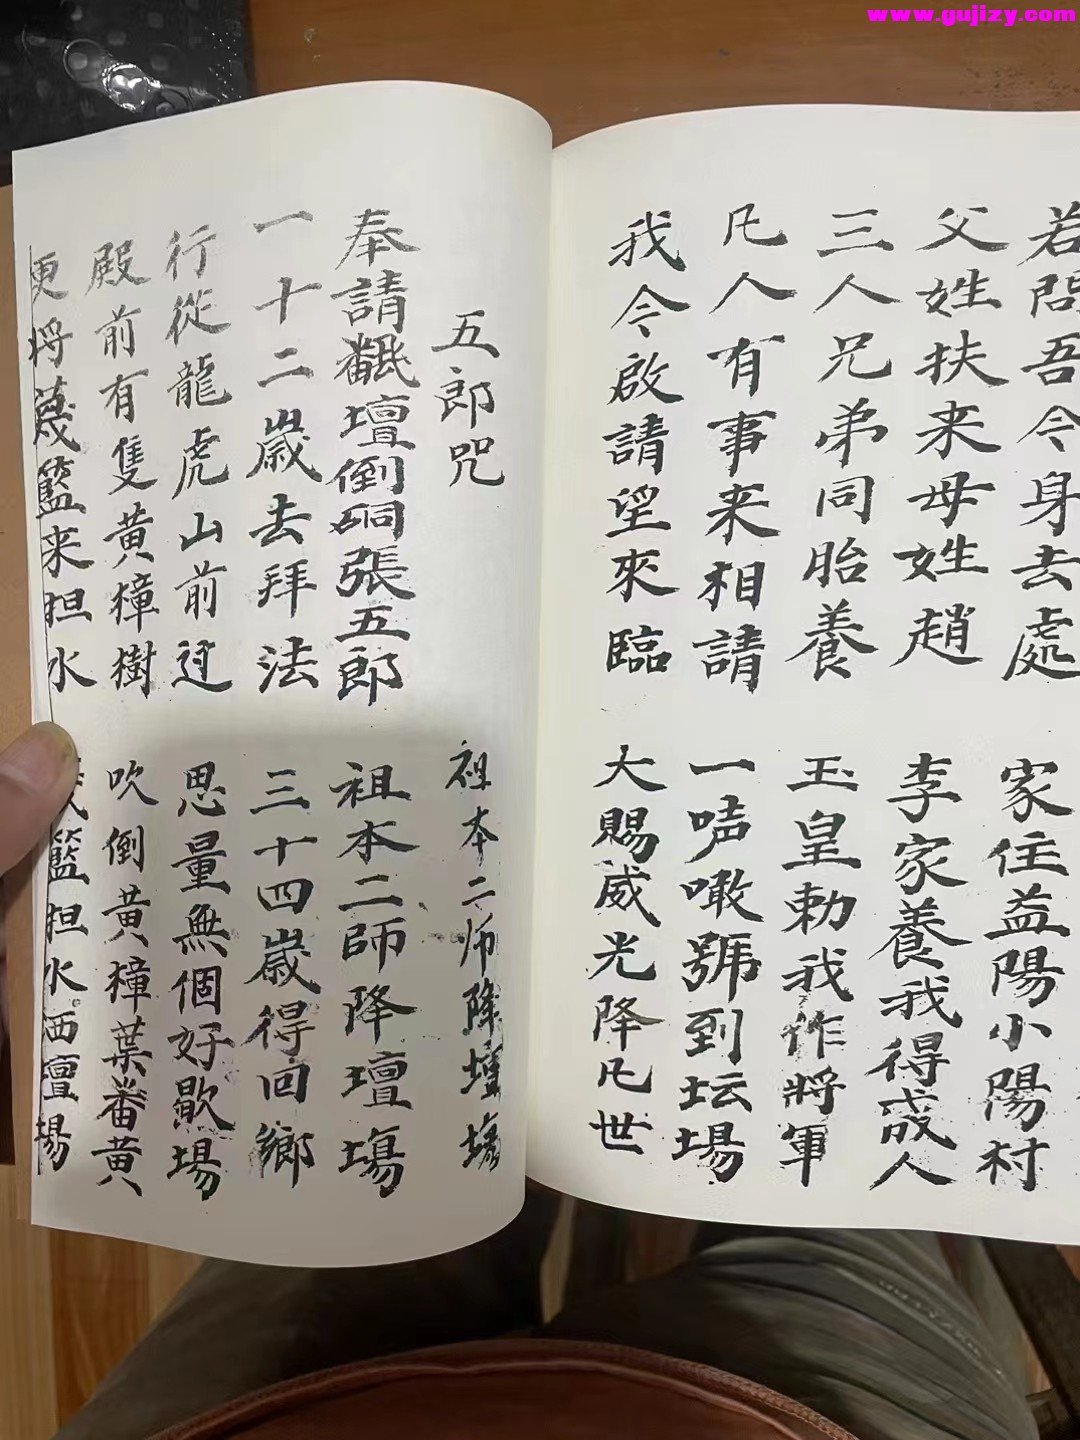 www.gujizy.com
若問吾今身去處
家住益陽小陽村
父姓扶来母姓趙
李家養我得成人
三人兄弟同胎養
玉皇勅我作將軍
凡人有事来相請
一唝噉號到坛場
我今啟請望來臨
大賜威光降凡世
五郎咒
祖本二师降壇場
奉請翻壇倒硐張五郎
祖本二師降壇場
一十二歲去拜法
三十四歲得回鄉
行從龍虎山前过
思量無個好歇場
殿前有隻黄樟樹
吹倒黄樟葉番黄
更将篾籃来担水
籃担水洒壇場